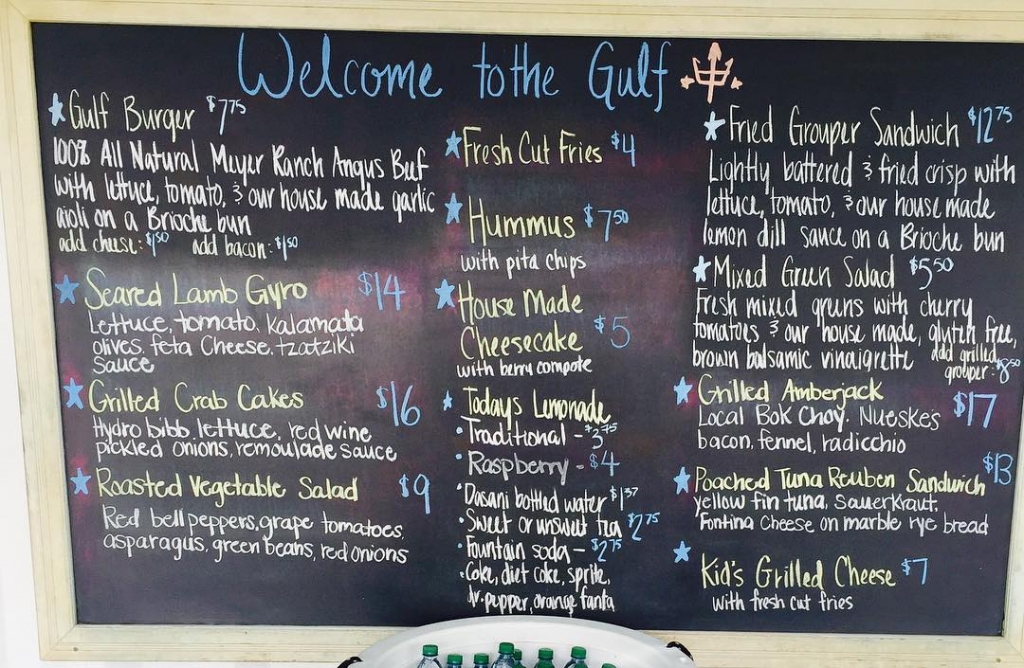 Welcome to the Gulf
Gulf Burger $7.75
100% All Natural Meyer Ranch Angus Beef
with lettuce, tomato, & our house made garlic
aioli on a Brioche bun
add cheese: $1.50 add bacon: $1.50
Seared Lamb Gyro $14
Lettuce, tomato, Kalamata
olives, feta Cheese, tzatziki
sauce
Grilled Crab Cakes $16
Hydro bibb lettuce, red wine
pickled onions, remoulade sauce
Roasted Vegetable Salad $9
Red bell peppers, grape tomatoes,
asparagus, green beans, red onions
Fresh Cut Fries $4
Hummus $7.50
with pita chips
House Made
Cheesecake $5
with berry compote
Todays Lemonade
• Traditional - $3.75
• Raspberry - $4
• Dasani bottled water $1.37
• Sweet or unsweet tea $2.75
• Fountain soda - $2.75
• Coke, diet coke, sprite,
dr. pepper, orange fanta
Fried Grouper Sandwich $12.75
Lightly battered & fried crisp with
lettuce, tomato, & our house made
lemon dill sauce on a Brioche bun
Mixed Green Salad $5.50
Fresh mixed greens with cherry
tomatoes & our house made, gluten free,
brown balsamic vinaigrette add grilled
grouper: $8.50
Grilled Amberjack $17
Local Bok Choy, Nueskes
bacon, fennel, radicchio
Poached Tuna Reuben Sandwich $13
yellow fin tuna, Sauerkraut,
Fontina Cheese on marble rye bread
Kid's Grilled Cheese $7
with fresh cut fries